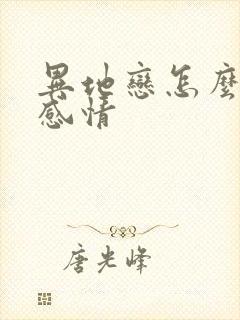 異地戀怎麼
感情
唐光峰